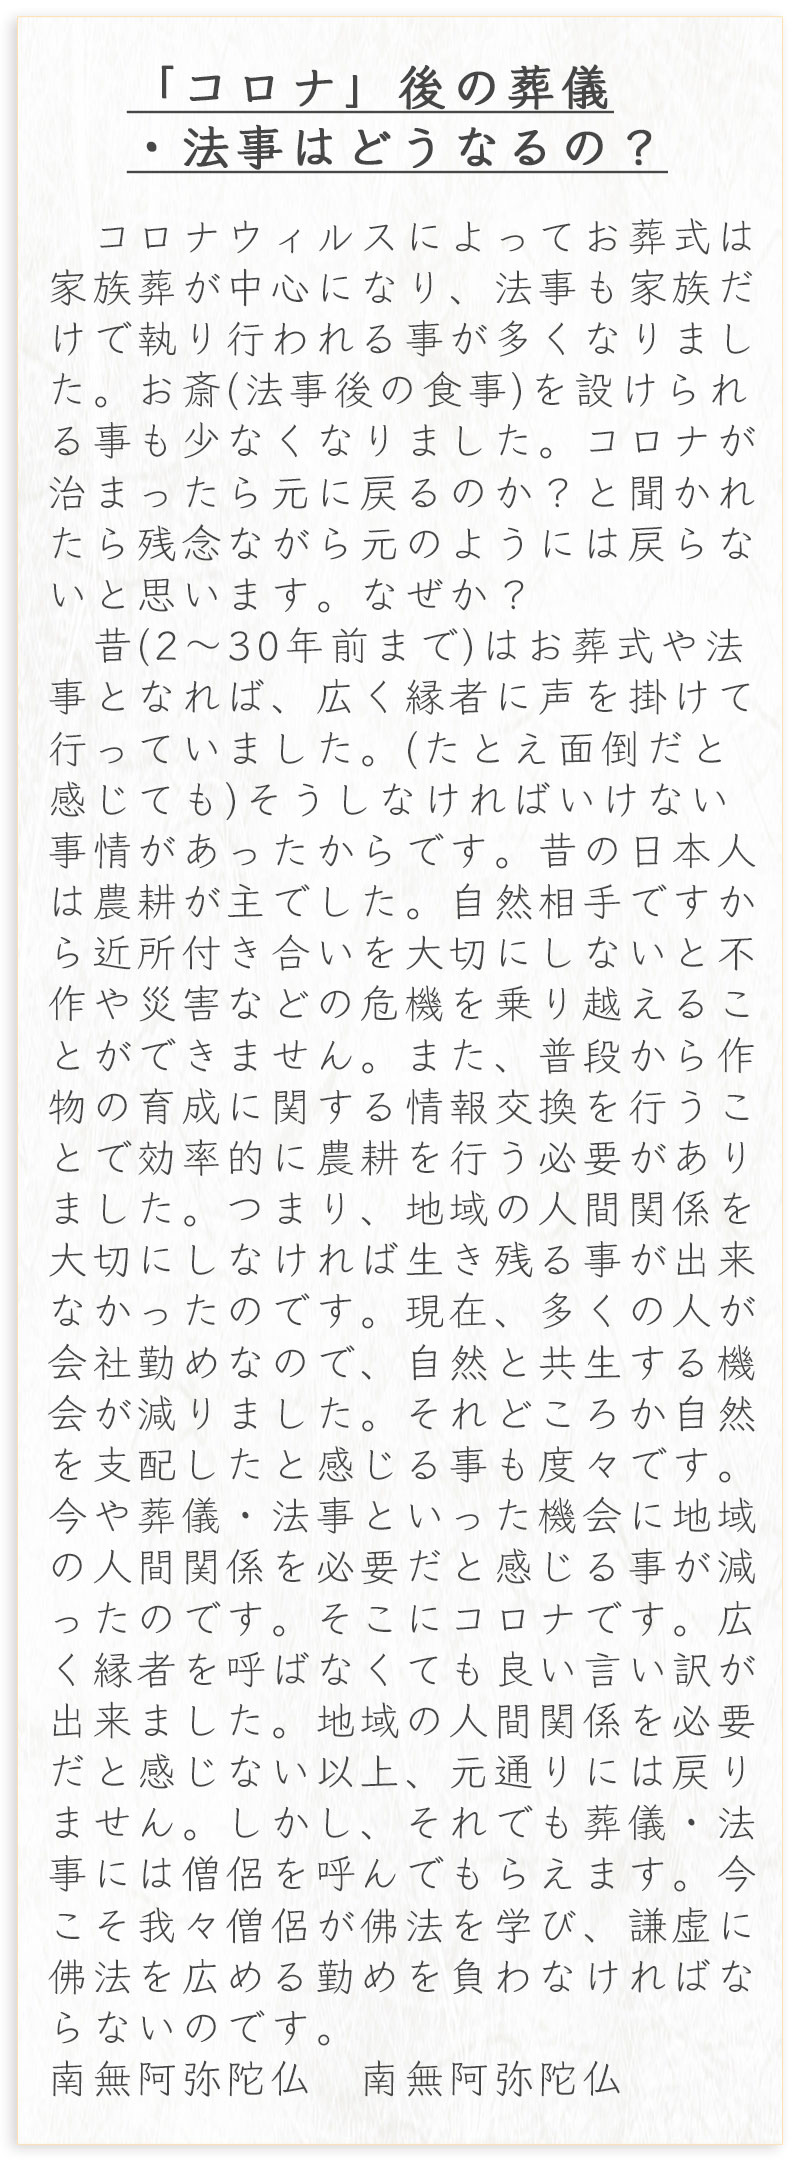 「コロナ」後の葬儀
・法事はどうなるの？
　コロナウィルスによってお葬式は
家族葬が中心になり、法事も家族だ
けで執り行われる事が多くなりまし
た。お斎(法事後の食事)を設けられ
る事も少なくなりました。コロナが
治まったら元に戻るのか？と聞かれ
たら残念ながら元のようには戻らな
いと思います。なぜか？
　昔(2～30年前まで)はお葬式や法
事となれば、広く縁者に声を掛けて
行っていました。(たとえ面倒だと
感じても)そうしなければいけない
事情があったからです。昔の日本人
は農耕が主でした。自然相手ですか
ら近所付き合いを大切にしないと不
作や災害などの危機を乗り越えるこ
とができません。また、普段から作
物の育成に関する情報交換を行うこ
とで効率的に農耕を行う必要があり
ました。つまり、地域の人間関係を
大切にしなければ生き残る事が出来
なかったのです。現在、多くの人が
会社勤めなので、自然と共生する機
会が減りました。それどころか自然
を支配したと感じる事も度々です。
今や葬儀・法事といった機会に地域
の人間関係を必要だと感じる事が減
ったのです。そこにコロナです。広
く縁者を呼ばなくても良い言い訳が
出来ました。地域の人間関係を必要
だと感じない以上、元通りには戻り
ません。しかし、それでも葬儀・法
事には僧侶を呼んでもらえます。今
こそ我々僧侶が佛法を学び、謙虚に
佛法を広める勤めを負わなければな
らないのです。
南無阿弥陀仏　南無阿弥陀仏